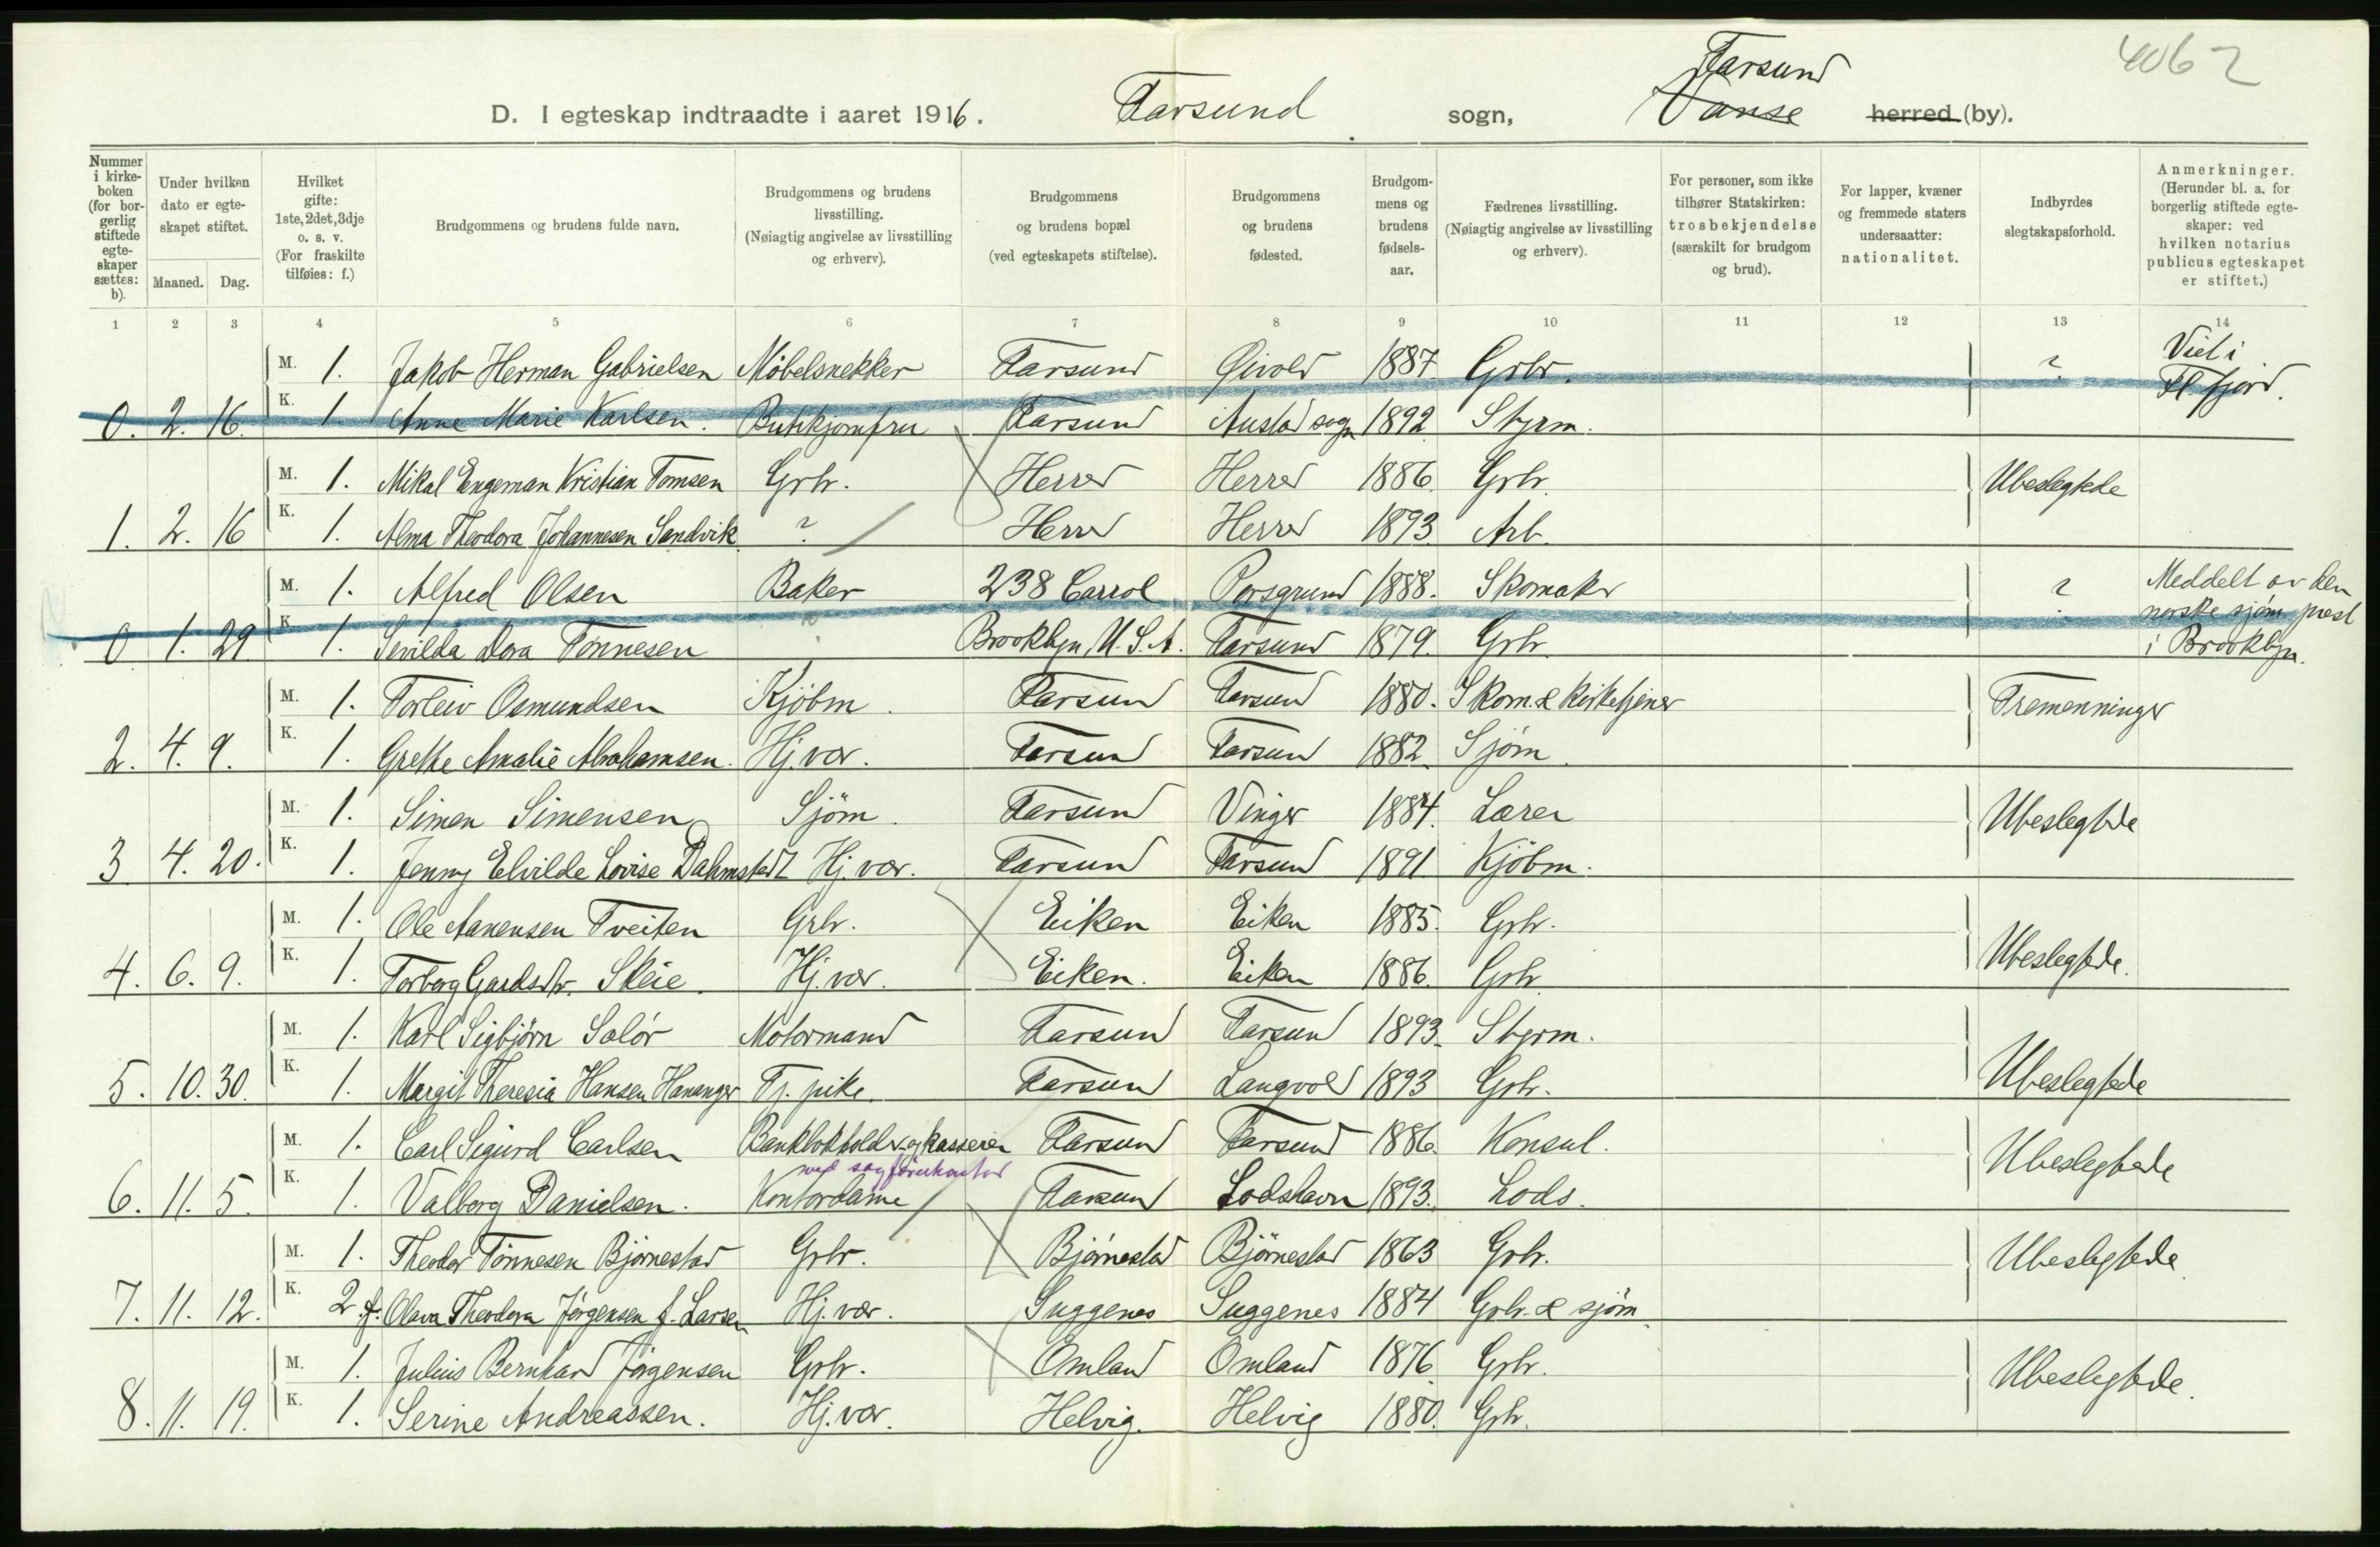 4062
Farsund
D. I egteskap indtraadte i aaret 1916. Farsund sogn, Vanse herred (by).
Nummer i kirkeboken (for borgerlig stiftede egteskaper sættes: b).
Under hvilken dato er egteskapet stiftet.
Maaned. Dag.
Hvilket gifte: 1ste, 2det, 3dje o. s. v. (For fraskilte tilføies: f.)
Brudgommens og brudens fulde navn.
Brudgommens og brudens livsstilling. (Nøiagtig angivelse av livsstilling og erhverv).
Brudgommens og brudens bopæl (ved egteskapets stiftelse).
Brudgommens og brudens fødested.
Brudgommens og brudens fødselsaar.
Fædrenes livsstilling. (Nøiagtig angivelse av livsstilling og erhverv).
For personer, som ikke tilhører Statskirken: trosbekjendelse (særskilt for brudgom og brud).
For lapper, kvæner og fremmede staters undersaatter: nationalitet.
Indbyrdes slegtskapsforhold.
Anmerkninger. (Herunder bl. a. for borgerlig stiftede egteskaper: ved hvilken notarius publicus egteskapet er stiftet.)
1 2 3 4 5 6 7 8 9 10 11 12 13 14
M. 1. Jakob Herman Gabrielsen Möbelsnekker Farsund Givold 1887. Grbr. ? Viet i Fl. fjord.
0. 2. 16. K. 1. Anne Marie Karlsen. Butikjomfru Farsund Austad sogn 1892 Styrm.
M. 1. Mikal Engeman Kristian Tomsen Grbr. Herred Herred 1886. Grbr. Ubeslegtede
1. 2. 16 K. 1. Alma Theodora Johannesen Sandvik ? Herred Herred 1893. Arb.
M. 1. Alfred Olsen Baker 238 Carrol Porsgrund 1888. Skomaker ? Meddelt av den norske sjöm. prest
0 1. 29. K. 1. Sevilda Dora Tönnesen Brooklyn, U.S.A. Farsund 1879. Grbr. i Brooklyn.
M. 1. Torleiv Osmundsen Kjöbm. Farsund Farsund 1880. Skom. & Kirketjener Tremenninger
2. 4. 9. K. 1. Grethe Amalie Abrahamsen. Hj. vær. Farsund Farsund 1882. Sjöm.
M. 1. Simen Simensen Sjöm. Farsund Vinger 1884. Lærer Ubeslegtede
3 4. 20. K. 1. Jenny Elvilde Lovise Dahmstedt Hj. vær. Farsund Farsund 1891 Kjöbm.
M. 1. Ole Aanensen Tveiten Grbr. Eiken Eiken 1885. Grbr. Ubeslegtede.
4. 6. 9. K. 1. Torborg Gardsdtr. Skeie. Hj. vær. Eiken. Eiken 1886. Grbr.
M. 1. Karl Sigbjörn Solör Motormand Farsund Farsund 1893. Styrm. Ubeslegtede
5. 10. 30. K. 1. Margit Theresia Hansen Hananger Tj. pike. Farsund Langvold 1893 Grbr.
M. 1. Carl Sigurd Carlsen Bankbokholder og kasserer Farsund Farsund 1886. Konsul. Ubeslegtede
ved sagförerkontor
6. 11. 5. K. 1. Valborg Danielsen. Kontordame Farsund Lodshavn 1893. Lods.
M. 1. Theodor Tönnesen Björnestad Grbr. Björnestad Björnestad 1863 Grbr. Ubeslegtede
7. 11. 12. K. 2. f. Olava Theodora Jörgensen f. Larsen Hj. vær. Suggenes Suggenes 1884 Grbr. & sjöm.
M. 1. Julius Bernhard Jörgensen Grbr. Omland Omland 1876. Grbr. Ubeslegtede.
8. 11. 19. K. 1. Serine Andreassen. Hj. vær. Helvig. Helvig 1880. Grbr.